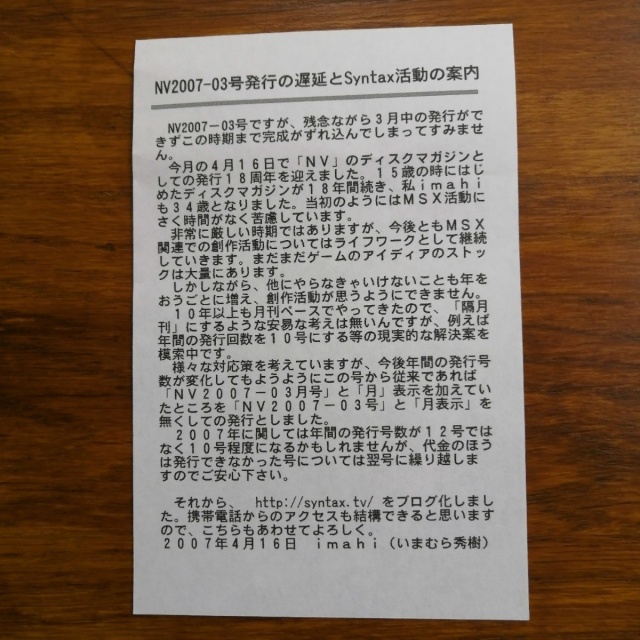 NV2007-03号発行の遅延とSyntax活動の案内
NV2007－03号ですが、残念ながら３月中の発行がで
きずこの時期まで完成がずれ込んでしまってすみませ
ん。
今月の４月１６日で「ＮＶ」のディスクマガジンと
しての発行１８周年を迎えました。１５歳の時にはじ
めたディスクマガジンが１８年間続き、私ｉｍａｈｉ
も３４歳となりました。当初のようにはＭＳＸ活動に
さく時間がなく苦慮しています。
非常に厳しい時期ではありますが、今後ともＭＳＸ
関連での創作活動についてはライフワークとして継続
していきます。まだまだゲームのアイディアのストッ
クは大量にあります。
しかしながら、他にやらなきゃいけないことも年を
おうごとに増え、創作活動が思うようにできません。
１０年以上も月刊ペースでやってきたので、「隔月
刊」にするような安易な考えは無いんですが、例えば
年間の発行回数を１０号にする等の現実的な解決案を
模索中です。
様々な対応策を考えていますが、今後年間の発行号
数が変化してもようようにこの号から従来であれば
「ＮＶ２００７－０３月号」と「月」表示を加えてい
たところを「ＮＶ２００７－０３号」と「月表示」を
無くしての発行としました。
２００７年に関しては年間の発行号数が１２号では
なく１０号程度になるかもしれませんが、代金のほう
は発行できなかった号については翌号に繰り越しま
すのでご安心下さい。
それから、 http://syntax.tv/ をブログ化しまし
た。携帯電話からのアクセスも結構できると思います
ので、こちらもあわせてよろしく。
２００７年４月１６日　ｉｍａｈｉ（いまむら秀樹）